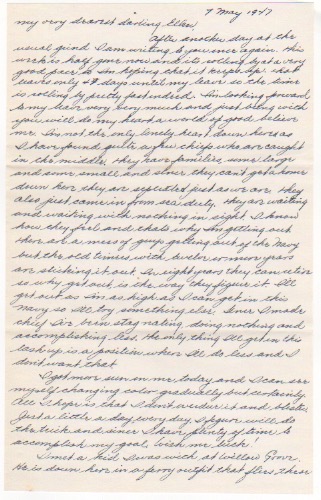 7 May 1947
my very dearest darling Ellen
After another day at the
usual grind I am writing to you once again. this
week is half gone now and its rolling by at a very
good pace so Im hoping that it keeps up. that
leaves only 49 days until my leave so the time
is rolling by pretty fast indeed. Im looking forward
to my leave very very much and just being with
you will do my heart a world of good believe
me. Im not the only lonely heart down here as
I have found quite a few chiefs who are caught
in the middle. they have families, some large
and some small and since they cant get a home
down here they are separated just as we are. they
also just came in from sea duty. they are waiting
and waiting with nothing in sight. I know
how they feel and thats why Im getting out
there are a mess of guys getting out of the Navy
but the old timers with twelve or more years
are sticking it out. In eight years they can retire
so why get out is the way they figure it. Ill
get out as Im as high as I can get in this
navy so Ill try something else. Since I made
chief Ive been stagnating, doing nothing and
accomplishing less. the only thing Ill get in this
is a position where Ill do less and I
dont want that
I got more sun on me today and I can see
myself changing color gradually but certainly.
All I hope is that I dont overdue it and blister.
Just a little a day every day I figure will do
the trick and since I have plenty of time to
accomplish my goal. wish me luck!
I met a kid I was with at Willow Grove.
He is down here in a ferry outfit that flies these